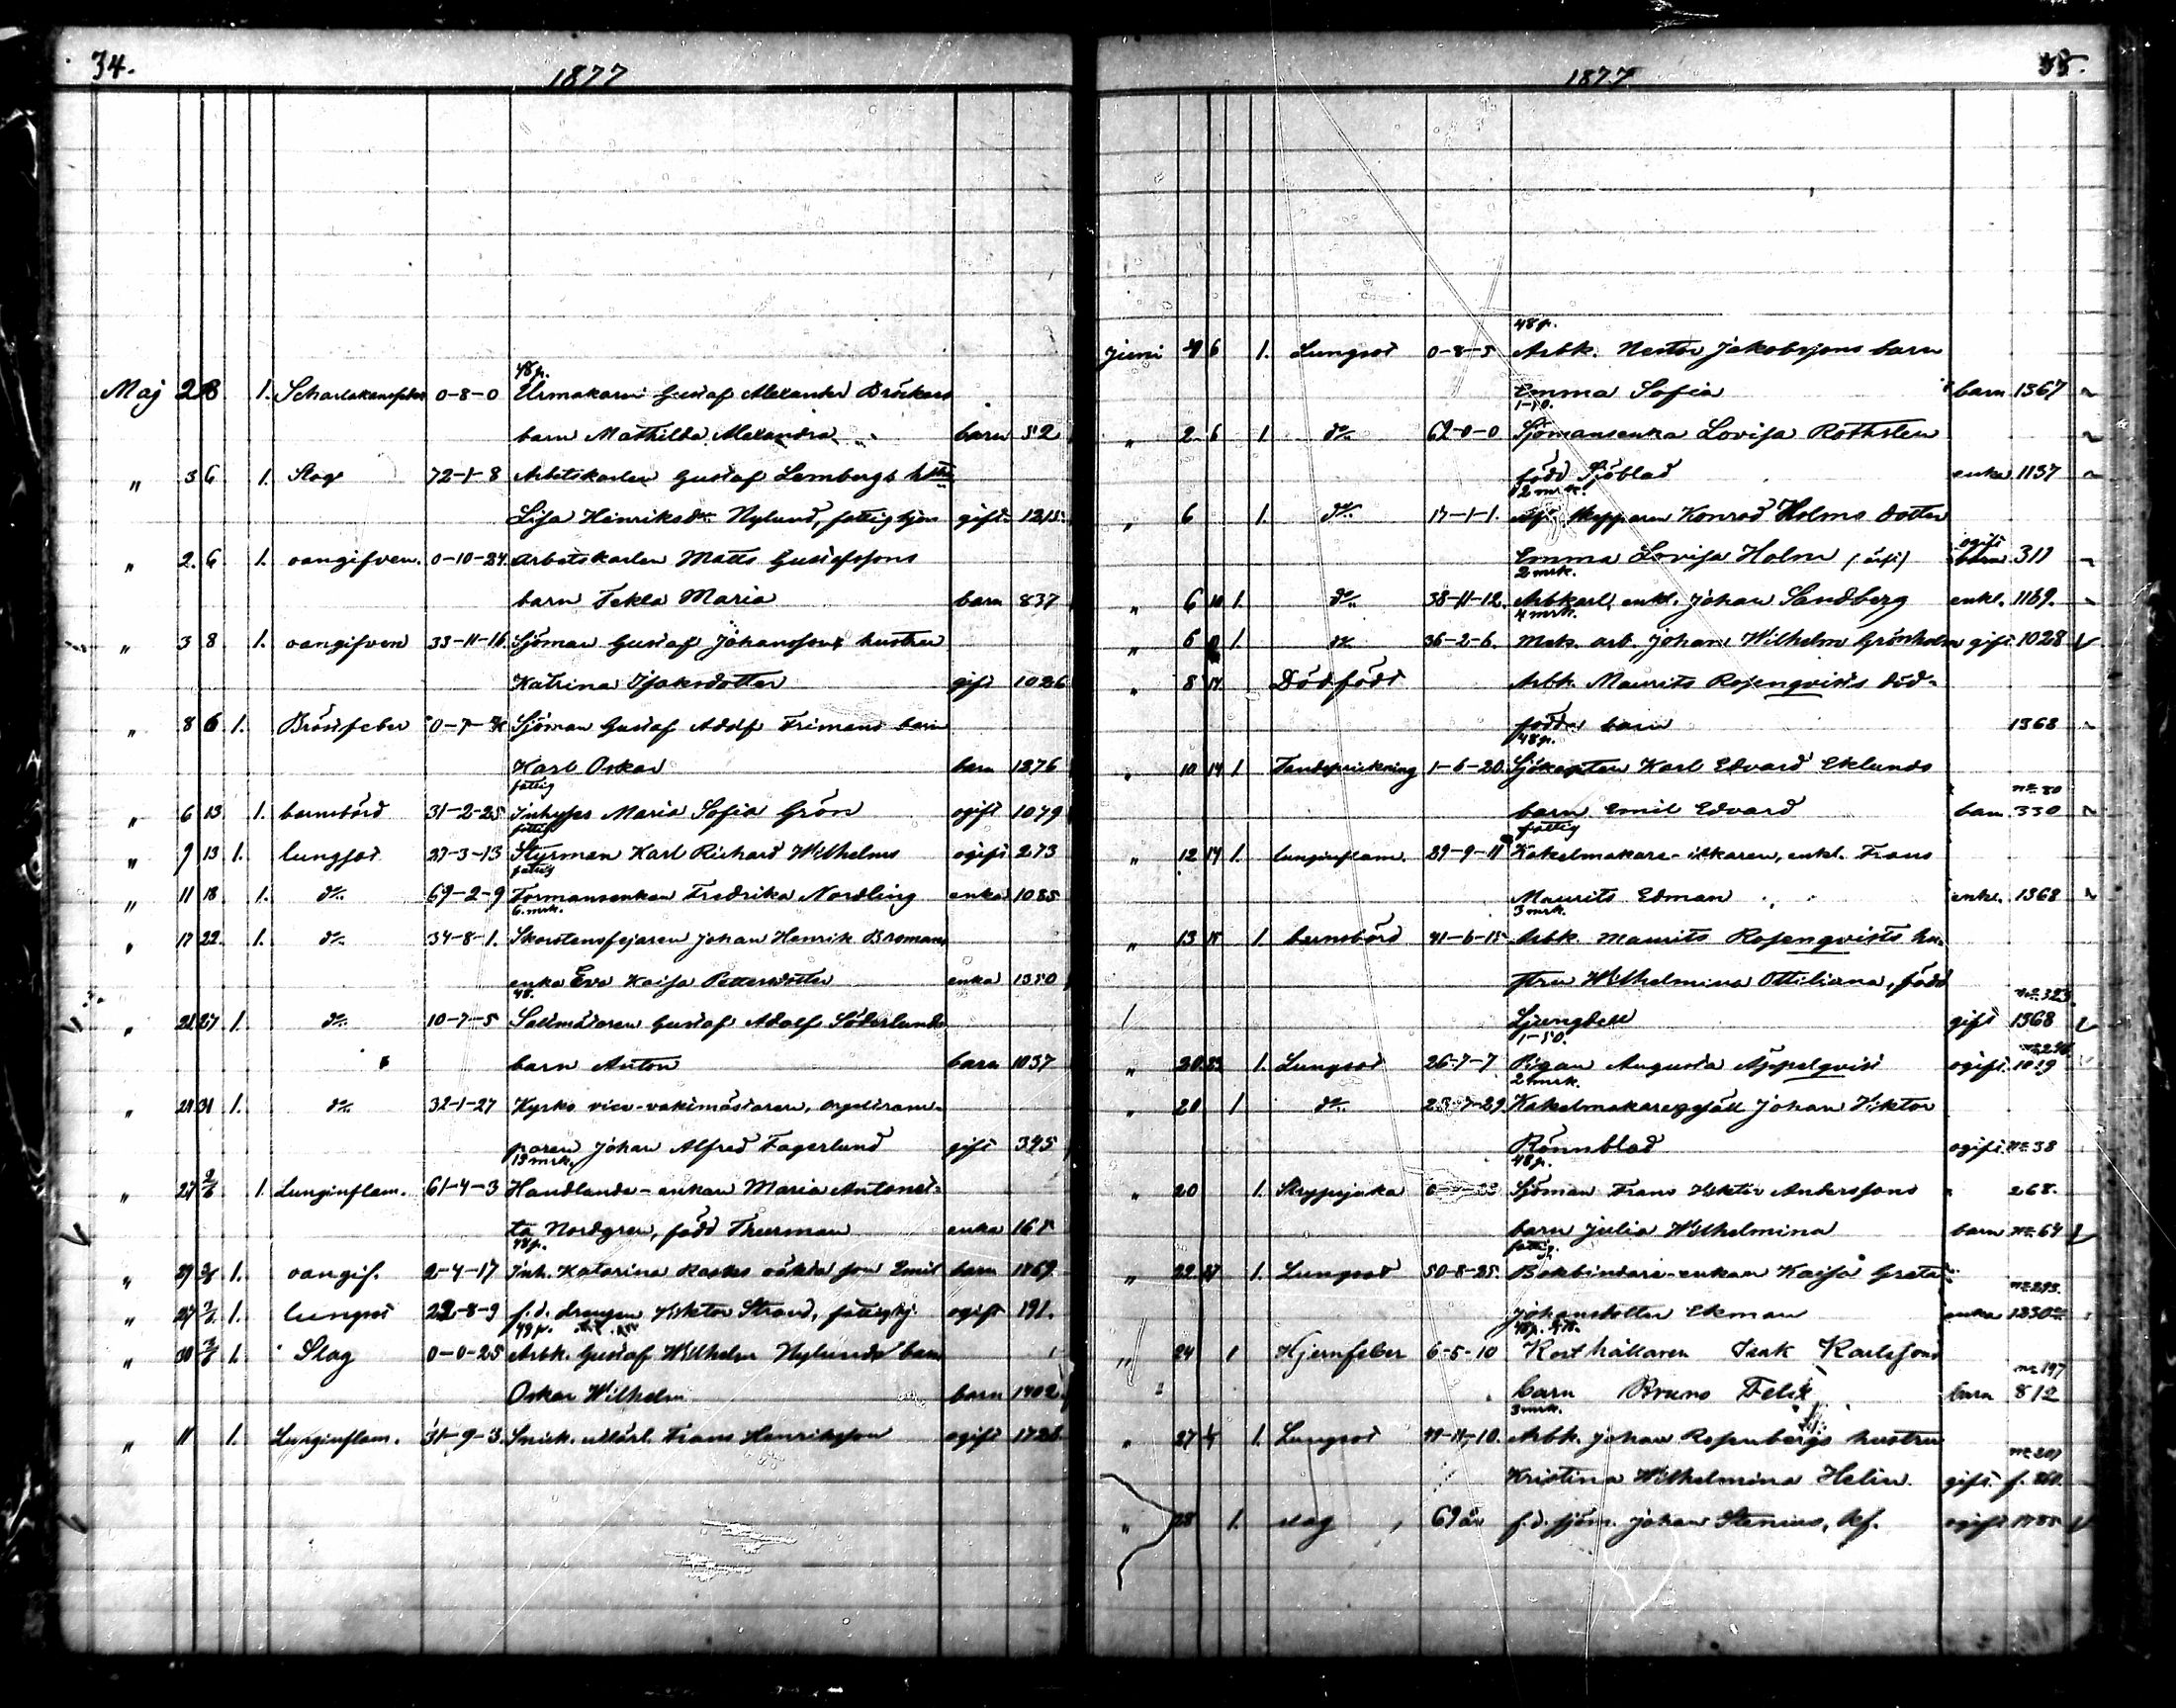 34.
1877
48 p.
Maj 2 8 1. Scharlakansfeber 0-8-0 Urmakarn Gustaf Alexander Bröckers
barn Mathilda Alexandra barn 52
" 3 6 1. Slag 72-1-8 Arbetskarlen Gustaf Lembergs hstru
Lisa Henriksdr Nylund, fattighjon gift 1215
" 2. 6 1. oangifven. 0-10-24. Arbetskarlen Matts Gustafssons
barn Tekla Maria barn 837
" 3 8 1. oangifven 33-11-16. Sjöman Gustaf Johanssons hustru
Katrina Isaksdotter gift 1026
" 8 6 1. Bröstfeber 0-7- Sjöman Gustaf Adolf Frimans barn
Karl Oskar barn 1376
fattig
" 6 13 1. barnsbörd 31-2-25 Inhyses Maria Sofia Grön ogift 1079
fattig
" 9 13 1. lungsot 27-3-13 Styrman Karl Richard Wilhelms ogift 273
fattig
" 11 18 1. do 69-2-9 Formansenkan Fredrika Nordling enka 1085
6. mrk.
" 17 22. 1. do 34-8-1. Skorstensfejaren Johan Henrik Bromans
enka Eva Kaisa Pettersdotter enka 1350
48.
" 21 27 1. do 10-7-5 Salimätaren Gustaf Adolf Söderlunds
barn Anton barn 1037
" 21 31 1. do 32-1-27 Kyrko vice-vaktmästaren, orgeltram-
paren Johan Alfred Fagerlund gift 395
15 mrk.
" 27 2/6 1. Lunginflam. 61-4-3 Handlande-enkan Maria Antonet-
ta Nordgren, född Thurman enka 165
48 p.
" 29 1. oangif. 2-4-17 Inh. Katarina Rasks oäkta son Emil barn 1769
" 27 2/6 1. lungsot 22-8-9 f. d. drengen Viktor Strand, fattighj. ogift 191.
48 p.
" 30 2/6 1. Slag 0-0-25 Arbk. Gustaf Wilhelm Nylunds barn
Oskar Wilhelm barn 1402
" 11 1. Lunginflam. 31-9-3. Snick. Frans Henriksson ogift
35.
1877
48 p.
Juni 4 6 1. Lungsot 0-8-5 Arbk. Nestor Jakobssons barn
Emma Sofia barn 1367
1-10.
" 2 6 1 do 62-0-0 Sjömansenka Lovisa Rothsten
född Sjöblad enka 1137
2 mrk.
" 6 1. do 17-1-1. Skepparen Konrad Holms dotter
Emma Lovisa Holm ogift barn 311
2 mrk.
" 6 10 1. do 38-11-12. Arbkarl, enkl. Johan Sandberg enkl. 1169.
4 mrk.
" 6 1. do 36-2-6. Mek. arb. Johan Wilhelm Grönholm gift 1028
" 8 14 Dödfödt Arbk. Maurits Rosenqvists död-
födda barn 1368
48 p.
" 10 14 1 Tandsprickning 1-6-20. Sjökapten Karl Edvard Eklunds
barn Emil Edvard barn 330
fattig
" 12 14 1. lunginflam. 29-9-11 Kakelmakare- enkl. Frans
Maurits Edman enkl. 1368
3 mrk.
" 13 15 1 barnsbörd 41-6-15 Arbk. Maurits Rosenqvists hu-
stru Wilhelmina Ottiliana, född
nr 323.
Ljungdell gift 1368
1-50.
" 20 23 1. Lungsot 26-7-7 Pigan Augusta Äppelqvist ogift 1019
2 mrk.
" 20 1 do 23-7-29 Kakelmakaregesäll Johan Viktor
Rönnblad ogift nr 38
48 p.
" 20 1. Strypsjuka Sjöman Frans Viktor Anderssons 268.
barn Julia Wilhelmina barn nr 64
fattig.
" 22 27 1. Lungsot 50-8-25. Bokbindare-enkan Kaisa Greta
Johansdotter Ekman enka 1330
48 p.
" 24 1 Hjernfeber 6-5-10 Korthållaren Isak Karlssons
nr 197
barn Bruno Felix barn 812
3 mrk.
" 27 1. Lungsot 44-11-10. Arbk. Johan Rosenbergs hustru
nr 201
Kristina Wilhelmina Helin gift f. 260.
" 28 1. slag 69 år f. d. sjöm. Johan Stenius, ogift